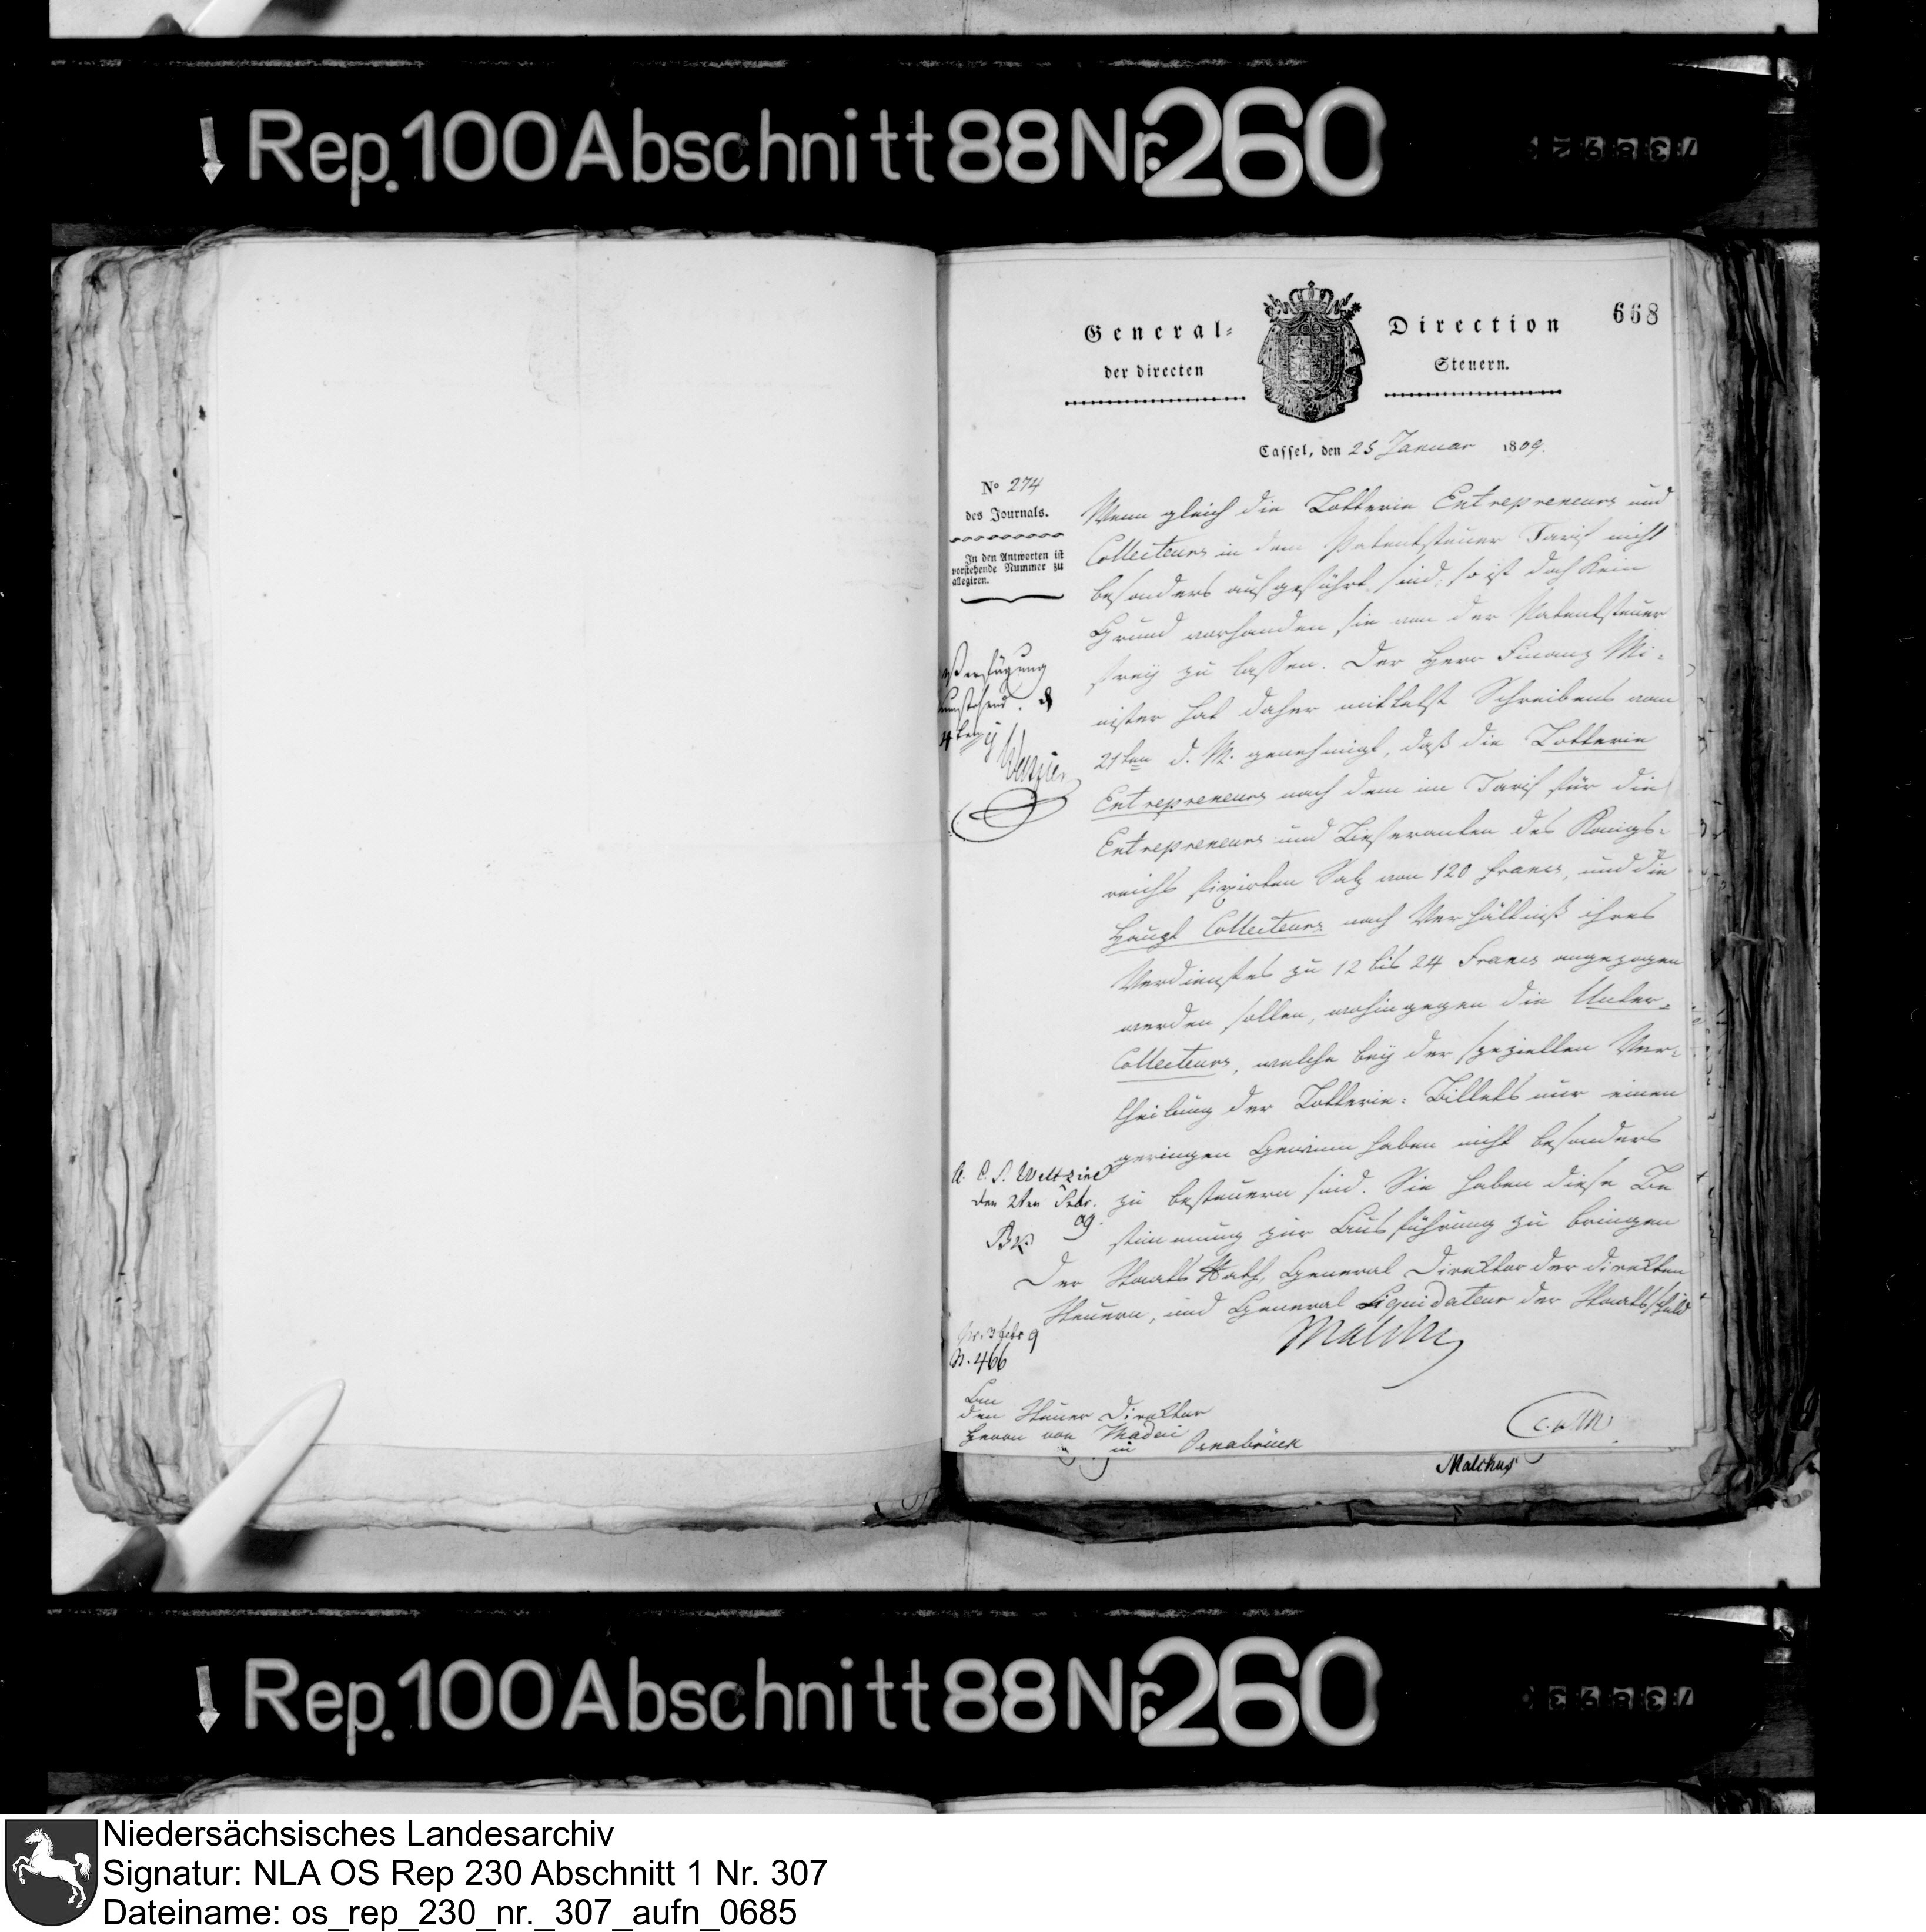 Rep. 100 Abschnitt 88 Nr. 260
73892
668
General-Direction
der directen Steuern.
Cassel, den 25 Januar 1809.
No 274
des Journals.
In den Antworten ist
vorstehende Nummer zu
allegiren.
Wenn gleich die Lotterie Entrepreneurs und
Collecteurs in dem Patentsteuer Tarif nicht
besonders aufgeführt sind; so ist doch kein
Grund vorhanden sie von der Patentsteuer
frey zu lassen. Der Herr Finanz Mi-
nister hat daher mittelst Schreibens vom
21ten d. M. genehmigt, daß die Lotterie
Entrepreneurs nach dem im Tarif für die
Entrepreneurs und Lieferanten des Königs-
reichs fixirten Satz von 120 francs, und die
Haupt Collecteurs nach Verhältniß ihres
Verdienstes zu 12 bis 24 Francs angezogen
werden sollen, wohingegen die Unter-
Collecteurs, welche bey der speziellen Ver-
theilung der Lotterie-Billets nur einen
geringen Gewinn haben nicht besonders
zu besteuern sind. Sie haben diese Be
stimmung zur Ausführung zu bringen
Der Staats Rath, General Direktor der direkten
Steuern, und General Liquidateur der Staatsschuld
Malchus
Verfügung
umstehend.
den 2ten Febr.
09.
3 Febr 9
N. 466
An
den Steuer Direktor
Herrn von Madai
in Osnabrück
Malchus
Rep. 100 Abschnitt 88 Nr. 260
73893
Niedersächsisches Landesarchiv
Signatur: NLA OS Rep 230 Abschnitt 1 Nr. 307
Dateiname: os_rep_230_nr._307_aufn_0685